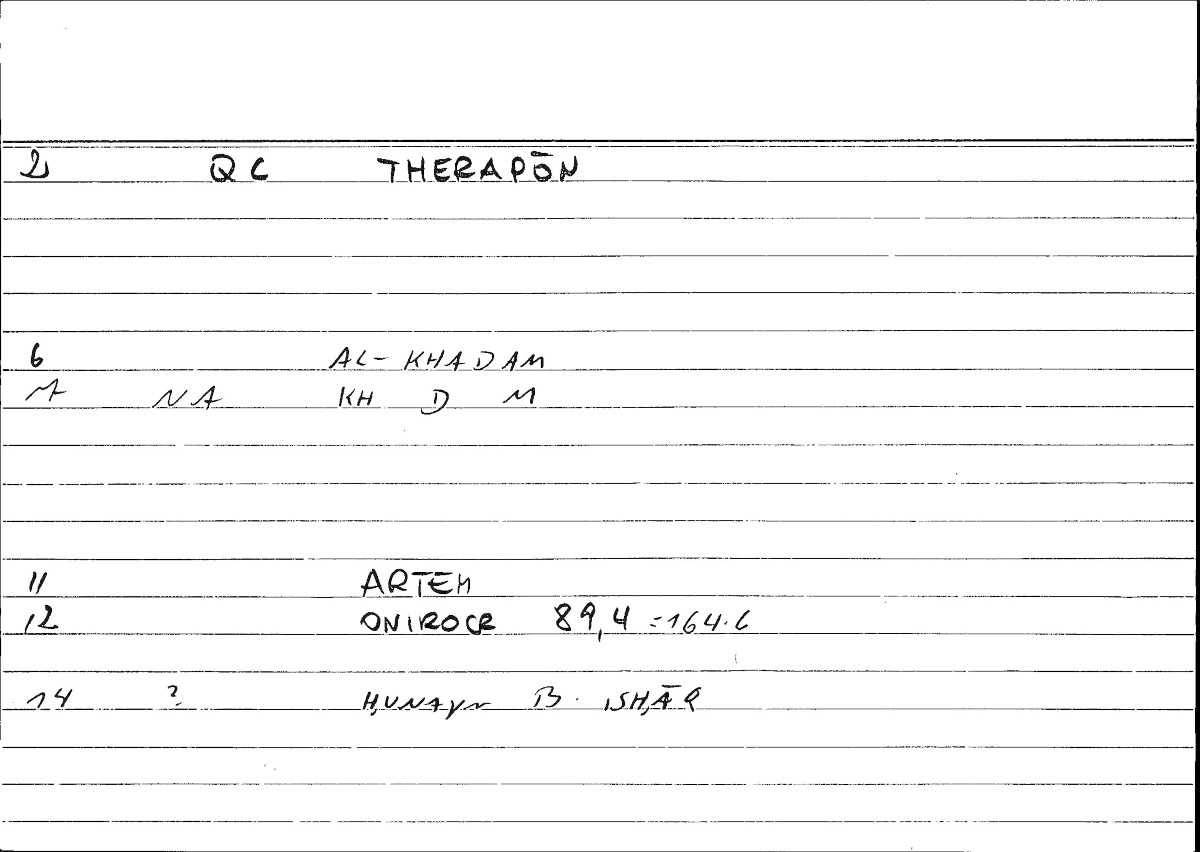 2 QC THERAPŌN
6 AL-KHADAM
NA KH D M
11 ARTEM
12 ONIROCR 89,4 =164.6
14 ? ḤUNAYN B. ISḤĀQ